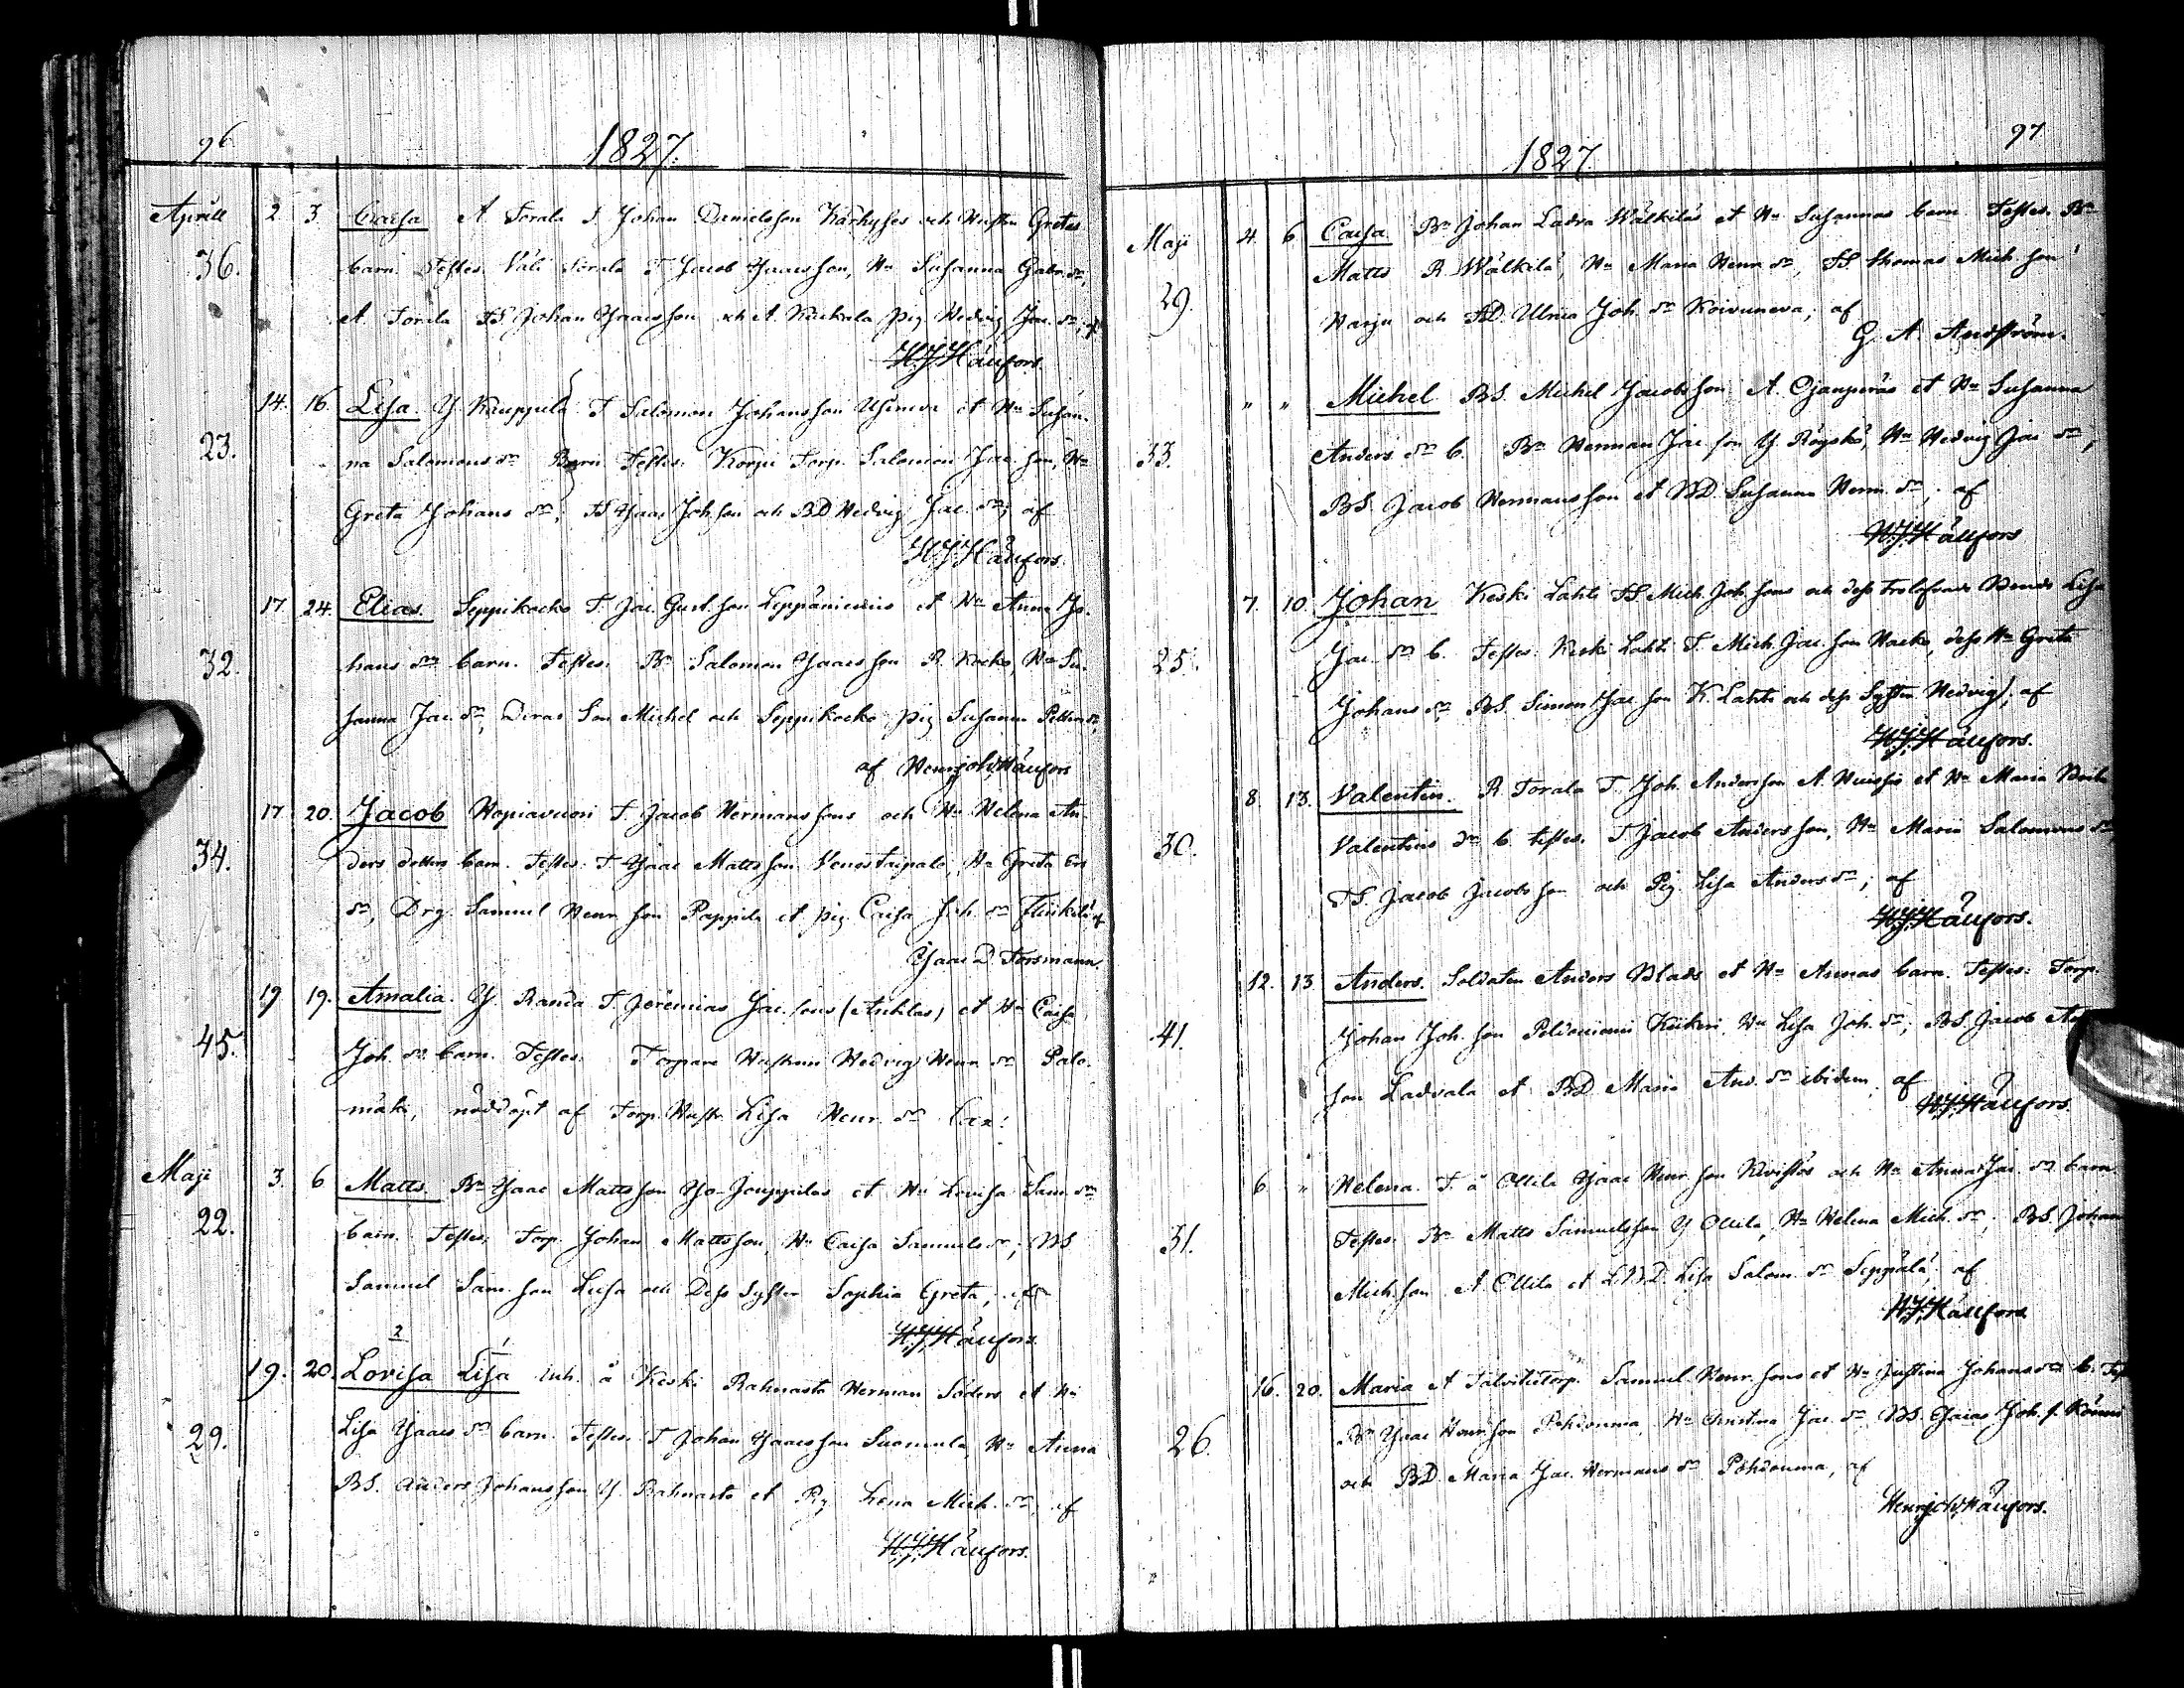 96 1827.
Aprill 2. 3. Caisa A Torala T Johan Danielsson Kärkyses och Hustru Gretas
36. barn. Testes. Väli Torala T Jacob Isaacsson, Hu Susanna Gabr. dr,
A. Torala TS Johan Isaacsson och A. Kauhala pig Hedvig Jac. dr; af
HJHäufors.
14. 16. Lisa Y Kauppila T Salomon Johansson et Hu Susan-
23. na Salomons dr Barn Testes. Korpi Torp. Salomon Jac. son, Hu
Greta Johans dr; TS Isaac Joh. son och BD Hedvig Jac. dr; af
HJHäufors.
17. 24. Elias. Seppikocko T. Jac. Gust. son Leppäniemis et Hu Anna Jo-
32. hans dr barn. Testes. Br Salomon Isaacsson R. Kocko, Hu Su-
sanna Jac. dr, Deras Son Michel och Seppikocko pig Susanna Petter dr,
af HenrJohHäufors
17. 20. Jacob Hopiavuori T. Jacob Hermanssons och Hu Helena An-
34. ders dotters barn. Testes. T Isaac Mattsson Venestripale, Hu Greta
dr, Drg. Samuel Henr. son Pappila et pig Caisa Joh. dr af
Isaac D Forsmann.
19 19. Amalia. Y. Randa T. Jeremias Jac. sons (Anhlas) et Hu Caisa
45. Joh. dr barn. Testes. Torpare Hustrun Hedvig Henr. dr Palo-
mäki, nöddöpt af Torp. Hustr. Lisa Henr. dr
Maji 3. 6 Matts. Br Isaac Mattsson Yo-Jouppilas et Hu Lovisa Sam. dr
22. barn. Testes. Torp. Johan Mattsson, Hu Caisa Samuels dr; BS
Samuel Sam. son och Dess Syster Sophia Greta, af
HJHäufors.
2 1
19. 20. Lovisa Lisa Inh. å Keski Rahnasto Herman Söders et Hu
29. Lisa Isaacs dr barn. Testes. T Johan Isaacsson Suomela, Hu Anna
BS. Anders Johansson Y. Rahnasto et Pig Lena Mich. dr; af
HJHäufors.
1827. 97
Maji 4. 6 Caisa. Br Johan Ladva Wälkiläs et Hu Susannas barn Testes. Br
29. Matts R. Wälkilä, Hu Maria Henr. dr, TS. Thomas Mich. son
Harju och TD. Ulrica Joh. dr Koivuneva; af
G. A. Andström.
" " Michel BS. Michel Jacobsson A. Ojanperäs et Hu Susanna
33. Anders dr b. Br Herman Jac. son Y. Röyskö, Hu Hedvig Jac dr,
BS. Jacob Hermansson et BD. Susanna Herm. dr; af
HJHäufors
7. 10. Johan Keski Lahti TS Mich. Joh. sons och dess trolofvade Lisa
25. Jac. dr b. Testes. Keski Lahti T. Mich. Jac. son dess Hu Greta
Johans dr BS. Simon Jac. son K. Lahti och dess Syster Hedvig; af
HJHäufors.
8. 13. Valentin. R Torala T. Joh. Andersson et Hu Maria
30. Valentins dr b. testes. T Jacob Andersson, Hu Maria Salomons dr
TS. Jacob Jacobsson och Pig Lisa Anders dr; af
HJHäufors.
12. 13 Anders. Soldaten Anders Blads et Hu Annas barn. Testes. Torp.
41. Johan Joh. son Kiikeri Hu Lisa Joh. dr, BS. Jacob
son Ladvala et BD Maria And. dr ibidem; af
HJHäufors.
6 " Helena. T. å Ollila Isaac Henr. son Kivistös och Hu Anna Jac. dr barn.
31. Testes. Br Matts Samuelsson Y Ollila, Hu Helena Mich. dr, BS. Johan
Mich. son A Ollila et BD. Lisa Salom. dr Seppälä; af
HJHäufors
16. 20. Maria A Talvitie Torp. Samuel Henr. sons et Hu Justina Johans dr b. Test
26. Br Isaac Henr. son Pohdonma, Hu Christina Jac. dr BS. Esaias Joh. s.
och BD. Maria Jac. Hermans dr Pohdonma, af
HenrJohHäufors.